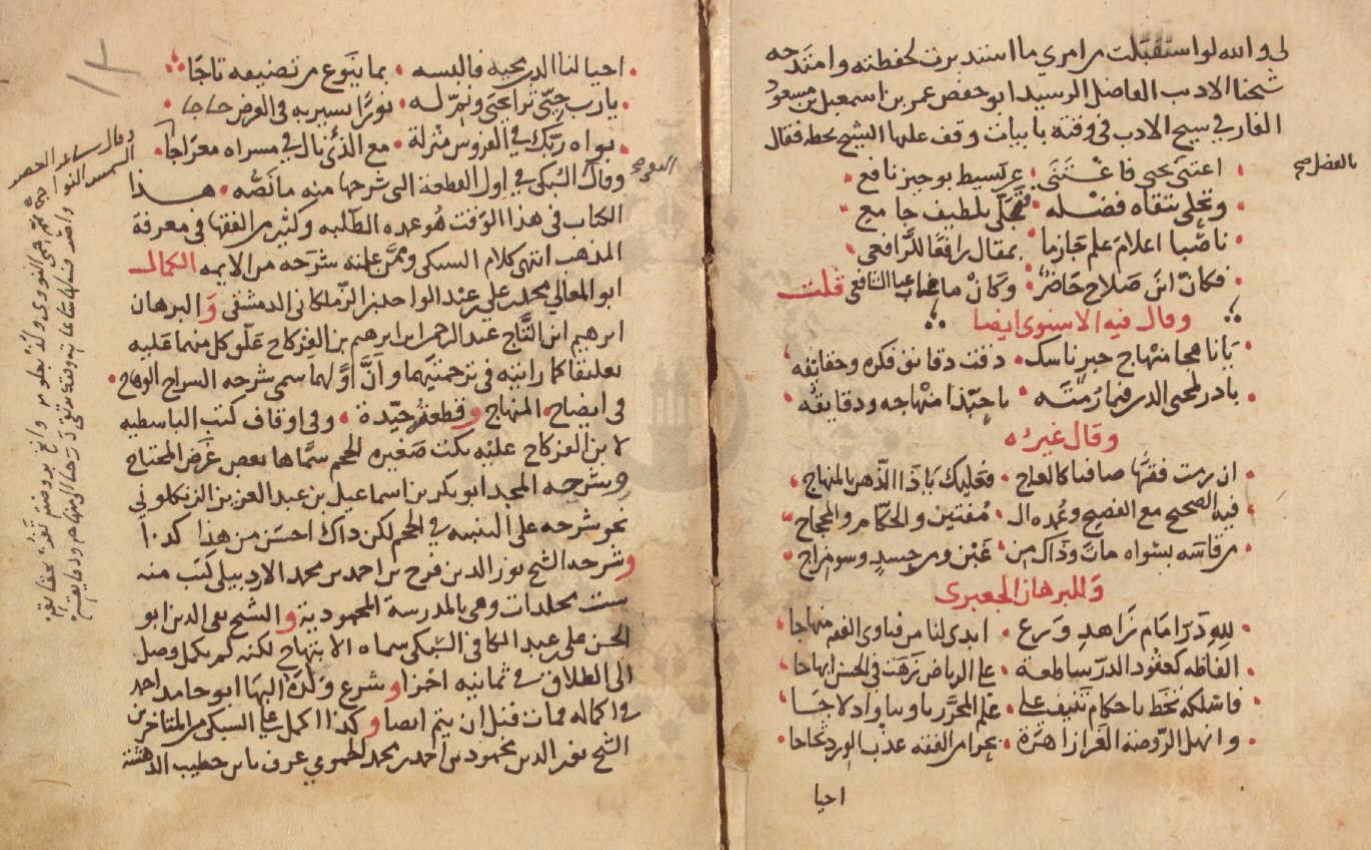 لى والله لو استقبلت من امري ما استدبرت لحفظته وامتدحه
شيخنا الاديب الفاضل الرشيد ابو حفص عمر بن اسمعيل بن مسعود
الفارقي شيخ الادب في وقته بابيات وقف عليها الشيخ بخطه فقال
اعتنى يحيى فاغتنى • عن بسيط بوجيز نافع
بالفضل صح
وتحلى بتقاه فضله • فتجلى بلطيف جامع
ناصبا اعلام علم جازما • بمقال رافعا للرافعي
فكان ابن صلاح حاضر • وكان ما غاب عنا الشافعي قلت
وقال فيه الاسنوي ايضا
يا ناهجا منهاج حبر ناسك • دقت دقائق فكره وحقائقه
بادر لمحيي الدين فيما رمته • يا حبذا منهاجه ودقايقه
وقال غيره
ان رمت فقها صافيا كالعاج • فعليك يا ذا الذهن بالمنهاج
فيه الصحيح مع الفصيح وعمدة ال • مفتين والحكام والحجاج
من قاسه بسواه مات وذاك من • غبن ومن حسد وسو مزاج
وللبرهان الجعبري
لله در امام زاهد ورع • ابدى لنا من فتاوى الفقه منهاجا
الفاظه كعقود الدر ساطعة • على الرياض نزهت في الحسن ابهاجا
فاسلكه تحظ باحكام تنيف على • علم المحرر تاويبا وادلاجا
وانهل الروضة الغرا زاهرة • بحرا من الفقه عذب الورد ثجاجا
احيا
احيا لنا الدين محييه فالبسه • بما ينوع من تصنيفه تاجا
يا رب حيي ثراعيني ونم له • نورا يسير به في العرض حاجا
بواه ربك في الفردوس منزلة • مع الذي نال في مسراه معراجا
وقال السبكي في اول القطعة التي شرحها منه ما نصه • هذا
الكتاب في هذا الوقت هو عمده الطلبه وكثير من الفقها في معرفة
المذهب انتهى كلام السبكي وممن علمته شرحه من الايمه الكمال
ابو المعالي محمد بن علي بن عبد الواحد بن الزملكاني الدمشقي والبرهان
ابرهيم ابن التاج عبد الرحمن بن ابرهيم بن الفركاح علق كل منهما عليه
تعليقا كما رايته في ترجمتيهما وان اولهما سمى شرحه السراج الوهاج
في ايضاح المنهاج وقطعة جيدة • وفي اوقاف كتب الباسطيه
لابن الفركاح عليه نكت صغيره الحجم سماها بعض غرض المحتاج
وشرحه المجد ابو بكر بن اسماعيل بن عبد العزيز الزنكلوني
نحو شرحه على التنبيه في الحجم لكن ذاك احسن من هذا كذا
وشرحه الشيخ نور الدين فرج بن احمد بن محمد الاردبيلي كتب منه
ست مجلدات وهي بالمدرسة المحمودية والشيخ تقي الدين ابو
الحسن علي بن عبد الكافي السبكي سماه الابتهاج لكنه لم يكمل وصل
الى الطلاق في ثمانيه اجزا وشرع ولده البها ابو حامد احمد
في اكماله فمات قبل ان يتم ايضا وكذا اكمل على السبكي من المتاخرين
الشيخ نور الدين محمود بن احمد بن محمد الحموي عرف بابن خطيب الدهشة